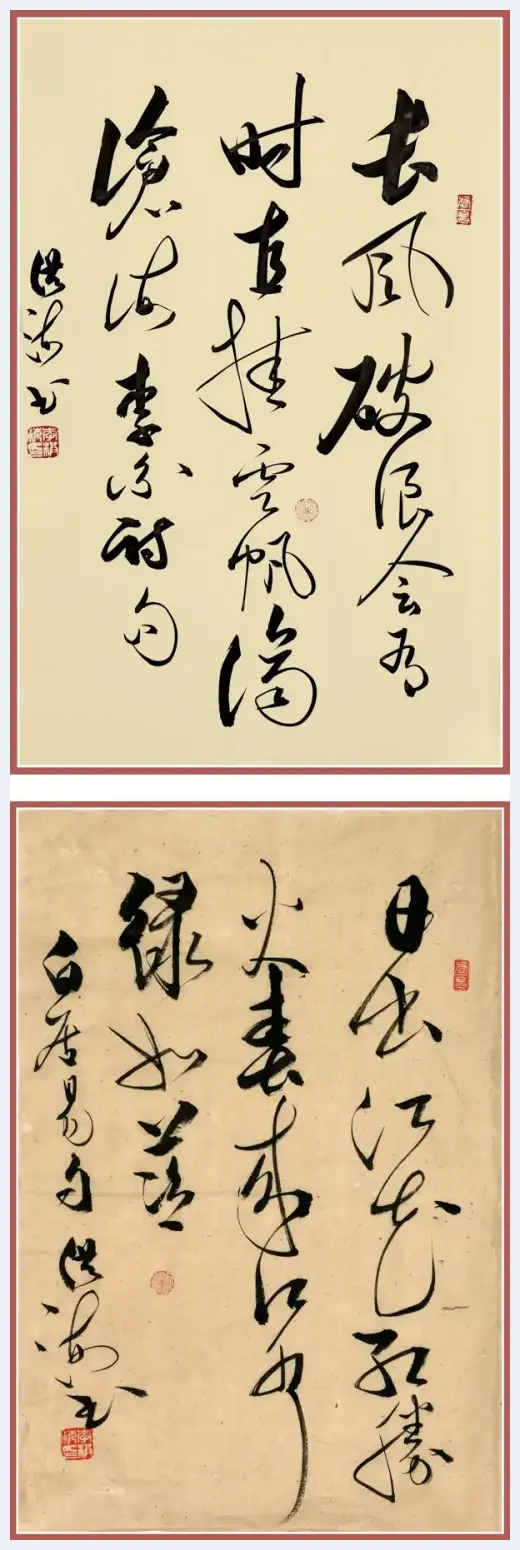 长风破浪会有
时直挂云帆济
滄海 李白诗句
洪海书
日出江花红勝
火春来江水
绿如蓝
白居易句 洪海书